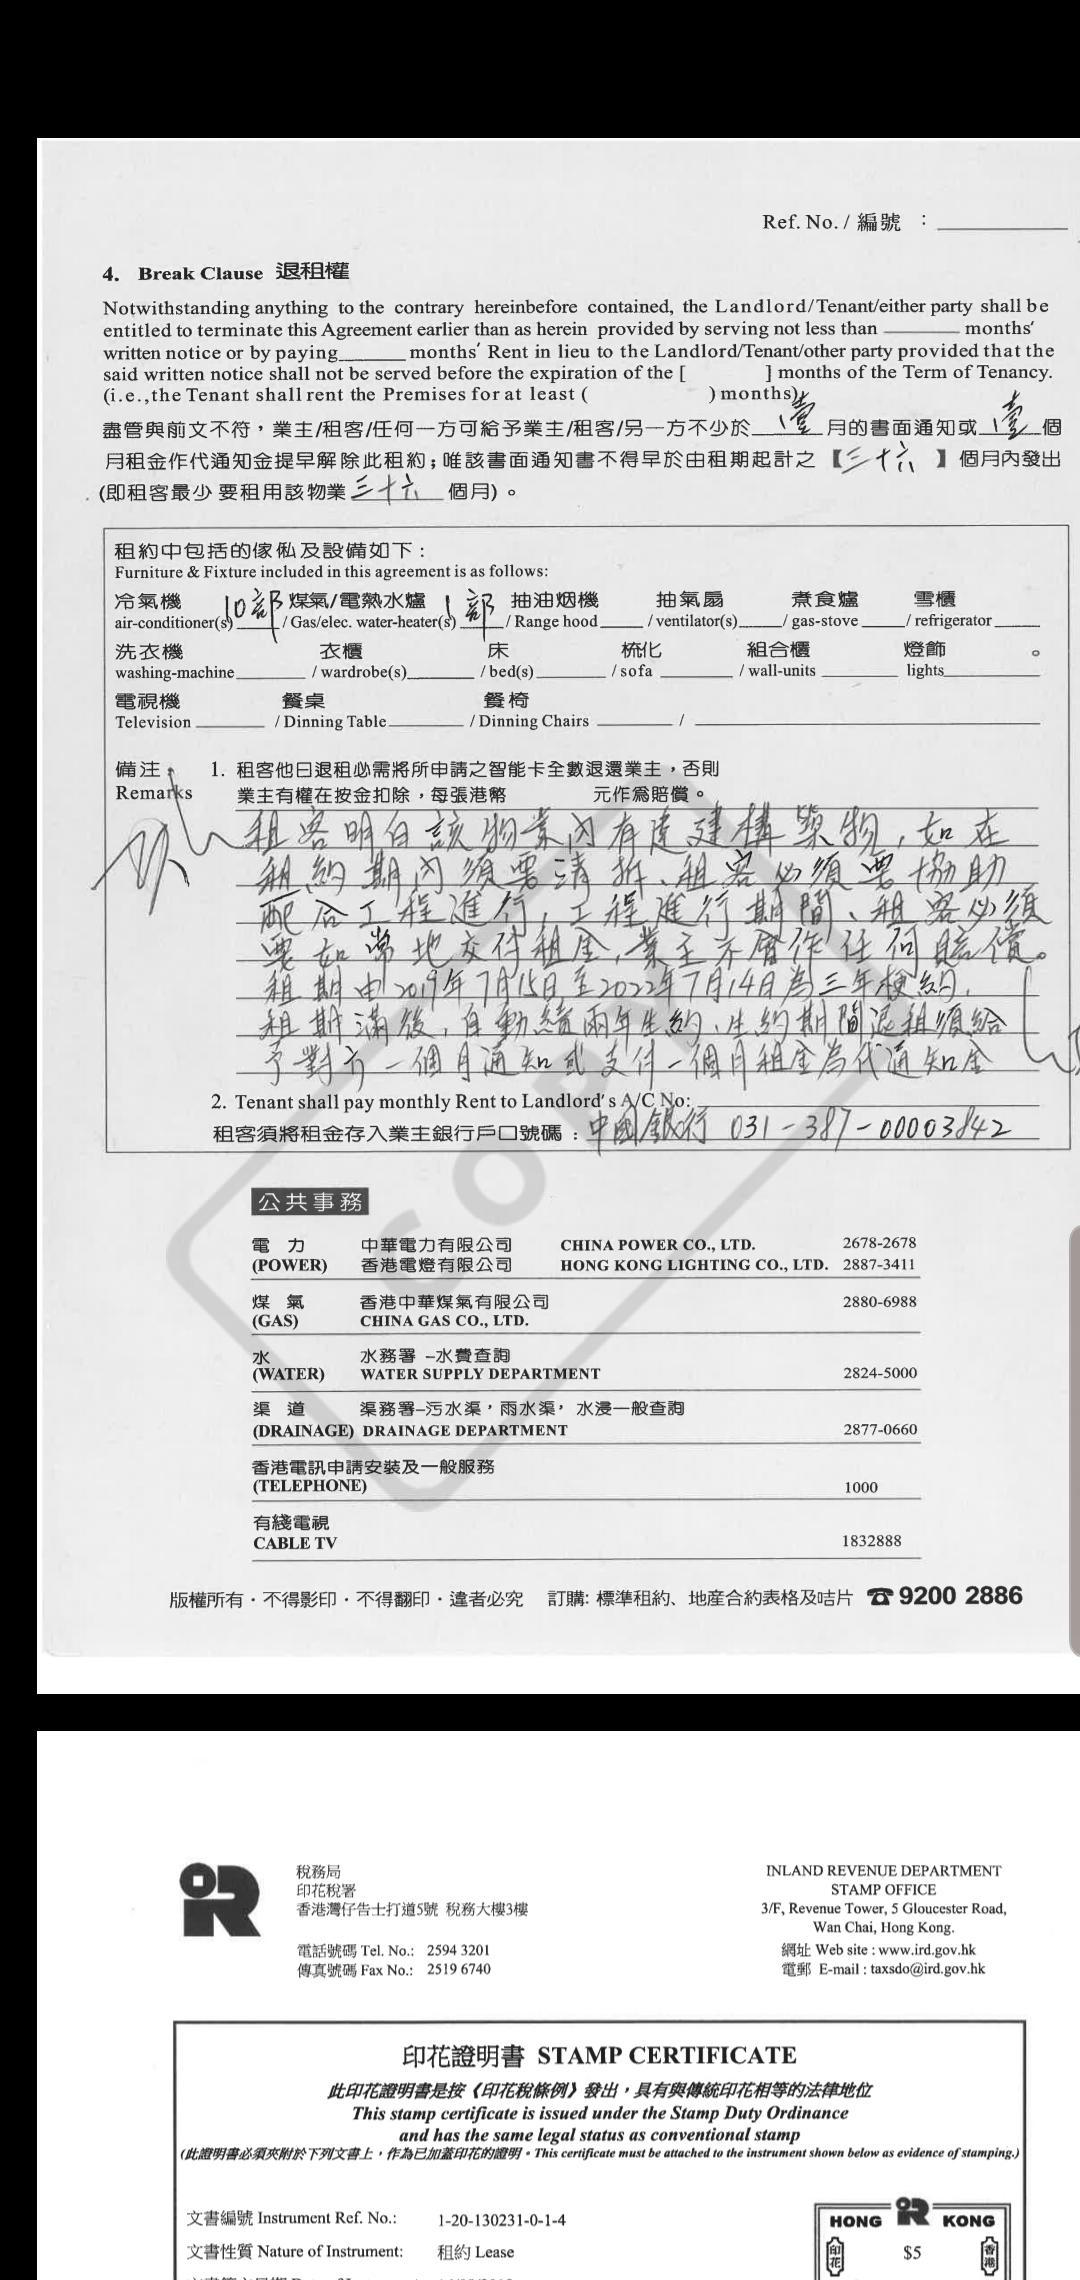 Ref. No. / 編號 ：
4. Break Clause 退租權
Notwithstanding anything to the contrary hereinbefore contained, the Landlord/Tenant/either party shall be
entitled to terminate this Agreement earlier than as herein provided by serving not less than ______ months'
written notice or by paying______ months' Rent in lieu to the Landlord/Tenant/other party provided that the
said written notice shall not be served before the expiration of the [ ] months of the Term of Tenancy.
(i.e.,the Tenant shall rent the Premises for at least ( ) months)
盡管與前文不符，業主/租客/任何一方可給予業主/租客/另一方不少於 壹 月的書面通知或 壹 個
月租金作代通知金提早解除此租約；唯該書面通知書不得早於由租期起計之【三十六 】個月內發出
(即租客最少要租用該物業 三十六 個月)。
租約中包括的傢俬及設備如下：
Furniture & Fixture included in this agreement is as follows:
冷氣機 10部 煤氣/電熱水爐 1部 抽油烟機 抽氣扇 煮食爐 雪櫃
air-conditioner(s)____ / Gas/elec. water-heater(s)____ / Range hood____ / ventilator(s)____ / gas-stove ____ / refrigerator ____
洗衣機 衣櫃 床 梳化 組合櫃 燈飾 。
washing-machine____ / wardrobe(s)____ / bed(s)____ / sofa ____ / wall-units ____ lights____
電視機 餐桌 餐椅
Television ____ / Dinning Table____ / Dinning Chairs ____ / ____
備注： 1. 租客他日退租必需將所申請之智能卡全數退還業主，否則
Remarks 業主有權在按金扣除，每張港幣 元作為賠償。
租客明白該物業內有違建構築物，如在
租約期內須要清拆、租客必須要協助
配合工程進行，工程進行期間、租客必須
要如常地交付租金，業主不會作任何賠償。
租期由2019年7月15日至2022年7月14日為三年梗約，
租期滿後，自動續兩年生約、生約期間退租須給
予對方一個月通知或支付一個月租金為代通知金
2. Tenant shall pay monthly Rent to Landlord's A/C No:
租客須將租金存入業主銀行戶口號碼：中國銀行 031-387-00003842
COPY
公共事務
電 力 中華電力有限公司 CHINA POWER CO., LTD. 2678-2678
(POWER) 香港電燈有限公司 HONG KONG LIGHTING CO., LTD. 2887-3411
煤 氣 香港中華煤氣有限公司 2880-6988
(GAS) CHINA GAS CO., LTD.
水 水務署 –水費查詢
(WATER) WATER SUPPLY DEPARTMENT 2824-5000
渠 道 渠務署–污水渠，雨水渠， 水浸一般查詢
(DRAINAGE) DRAINAGE DEPARTMENT 2877-0660
香港電訊申請安裝及一般服務
(TELEPHONE) 1000
有綫電視
CABLE TV 1832888
版權所有・不得影印・不得翻印・違者必究 訂購: 標準租約、地產合約表格及咭片 ☎ 9200 2886
稅務局
印花稅署
香港灣仔告士打道5號 稅務大樓3樓
電話號碼 Tel. No.: 2594 3201
傳真號碼 Fax No.: 2519 6740
INLAND REVENUE DEPARTMENT
STAMP OFFICE
3/F, Revenue Tower, 5 Gloucester Road,
Wan Chai, Hong Kong.
網址 Web site : www.ird.gov.hk
電郵 E-mail : taxsdo@ird.gov.hk
印花證明書 STAMP CERTIFICATE
此印花證明書是按《印花稅條例》發出，具有與傳統印花相等的法律地位
This stamp certificate is issued under the Stamp Duty Ordinance
and has the same legal status as conventional stamp
(此證明書必須夾附於下列文書上，作為已加蓋印花的證明。This certificate must be attached to the instrument shown below as evidence of stamping.)
文書編號 Instrument Ref. No.: 1-20-130231-0-1-4
文書性質 Nature of Instrument: 租約 Lease
HONG KONG
印花 $5 香港